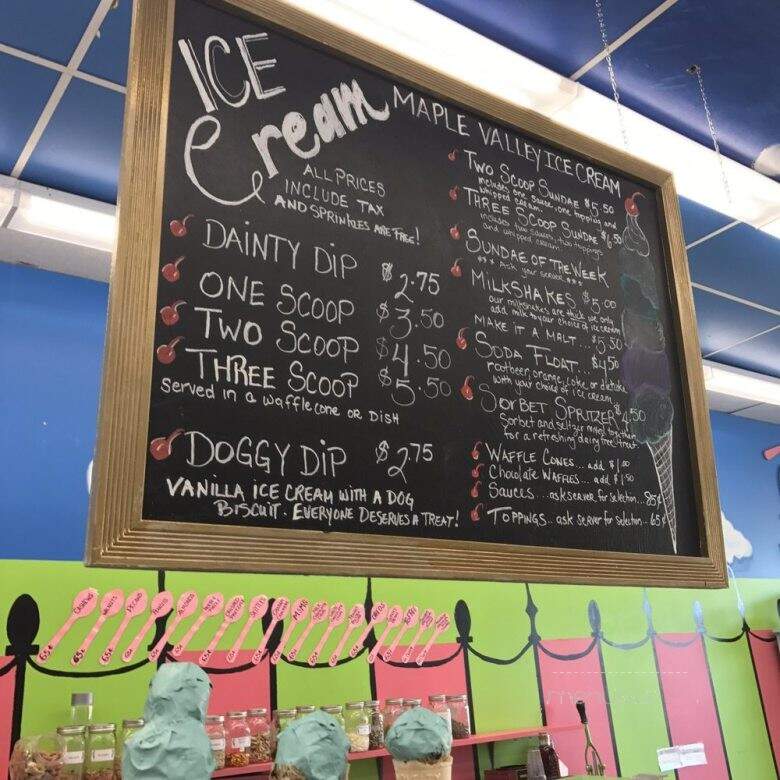 ICE
Cream
ALL PRICES
INCLUDE TAX
AND SPRINKLES ARE FREE!
DAINTY DIP $2.75
ONE SCOOP $3.50
TWO SCOOP $4.50
THREE SCOOP $5.50
served in a waffle cone OR DISH
DOGGY DIP $2.75
VANILLA ICE CREAM WITH A DOG
BISCUIT. EVERYONE DESERVES A TREAT!
MAPLE VALLEY ICE CREAM
TWO SCOOP SUNDAE $5.50
includes one sauce, one topping and
whipped cream.
THREE SCOOP SUNDAE $6.50
includes two sauces, two toppings
and whipped cream
SUNDAE OF THE WEEK
*** Ask your server ***
MILKSHAKES $5.00
our milkshakes are thick we only
add milk to your choice of ice cream
MAKE IT A MALT... $5.50
SODA FLOAT... $4.50
rootbeer, orange, coke, or diet coke
with your choice of ice cream
SORBET SPRITZER $4.50
Sorbet and seltzer mixed together
for a refreshing dairy free treat.
WAFFLE CONES... add $1.00
Chocolate WAFFLES... add $1.50
SAUCES... ask server for selection... 85¢
TOPPINGS... ask server for selection... 65¢